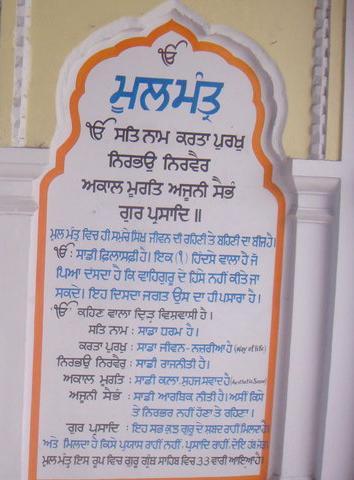 ੴ
ਮੂਲ ਮੰਤ੍ਰ
ੴ ਸਤਿ ਨਾਮ ਕਰਤਾ ਪੁਰਖੁ
ਨਿਰਭਉ ਨਿਰਵੈਰ
ਅਕਾਲ ਮੂਰਤਿ ਅਜੂਨੀ ਸੈਭੰ
ਗੁਰ ਪ੍ਰਸਾਦਿ ॥
ਮੂਲ ਮੰਤ੍ਰ ਵਿਚ ਹੀ ਸਮੁੱਚੇ ਸਿਖ ਜੀਵਨ ਦੀ ਰਹਿਣੀ ਤੇ ਬਹਿਣੀ ਦਾ ਬੀਜ ਹੈ।
ੴ : ਸਾਡੀ ਫ਼ਿਲਾਸਫ਼ੀ ਹੈ। ਇਕ (੧) ਹਿੰਦਸੇ ਵਾਲਾ ਹੋ ਜੋ
ਪਿਆ ਦਸਦਾ ਹੈ ਕਿ ਵਾਹਿਗੁਰੂ ਦੇ ਹਿਸੇ ਨਹੀਂ ਕੀਤੇ ਜਾ
ਸਕਦੇ। ਇਹ ਦਿਸਦਾ ਜਗਤ ਉਸ ਦਾ ਹੀ ਪਸਾਰਾ ਹੈ।
ੴ ਕਹਿਣ ਵਾਲਾ ਦ੍ਰਿੜ ਵਿਸ਼ਵਾਸੀ ਹੈ।
ਸਤਿ ਨਾਮ : ਸਾਡਾ ਧਰਮ ਹੈ।
ਕਰਤਾ ਪੁਰਖੁ : ਸਾਡਾ ਜੀਵਨ-ਨਜ਼ਰੀਆ ਹੈ (Way of life)
ਨਿਰਭਉ ਨਿਰਵੈਰ : ਸਾਡੀ ਰਾਜਨੀਤੀ ਹੈ।
ਅਕਾਲ ਮੂਰਤਿ : ਸਾਡੀ ਕਲਾ, ਸੁਹਜ ਸਵਾਦ ਹੈ (Aesthetic Sense)
ਅਜੂਨੀ ਸੈਭੰ : ਸਾਡੀ ਆਰਥਿਕ ਨੀਤੀ ਹੈ। ਅਸੀਂ ਕਿਸੇ
ਤੇ ਨਿਰਭਰ ਨਹੀਂ ਹੋਣਾ ਤੇ ਰਹਿਣਾ।
ਗੁਰ ਪ੍ਰਸਾਦਿ : ਇਹ ਸਭ ਕੁਝ ਗੁਰੂ ਦੇ ਸ਼ਬਦ ਰਾਹੀਂ ਮਿਲਣਾ ਹੈ।
ਅਤੇ ਮਿਲਦਾ ਹੈ ਕਿਸੇ ਪ੍ਰਯਾਸ ਰਾਹੀਂ ਨਹੀਂ, ਪ੍ਰਸਾਦਿ ਰਾਹੀਂ, ਦੋਇ ਹੱਥ ਜੋੜ।
ਮੂਲ ਮੰਤ੍ਰ ਇਸ ਰੂਪ ਵਿਚ ਗੁਰੂ ਗ੍ਰੰਥ ਸਾਹਿਬ ਵਿਚ 33 ਵਾਰੀ ਆਇਆ ਹੈ।